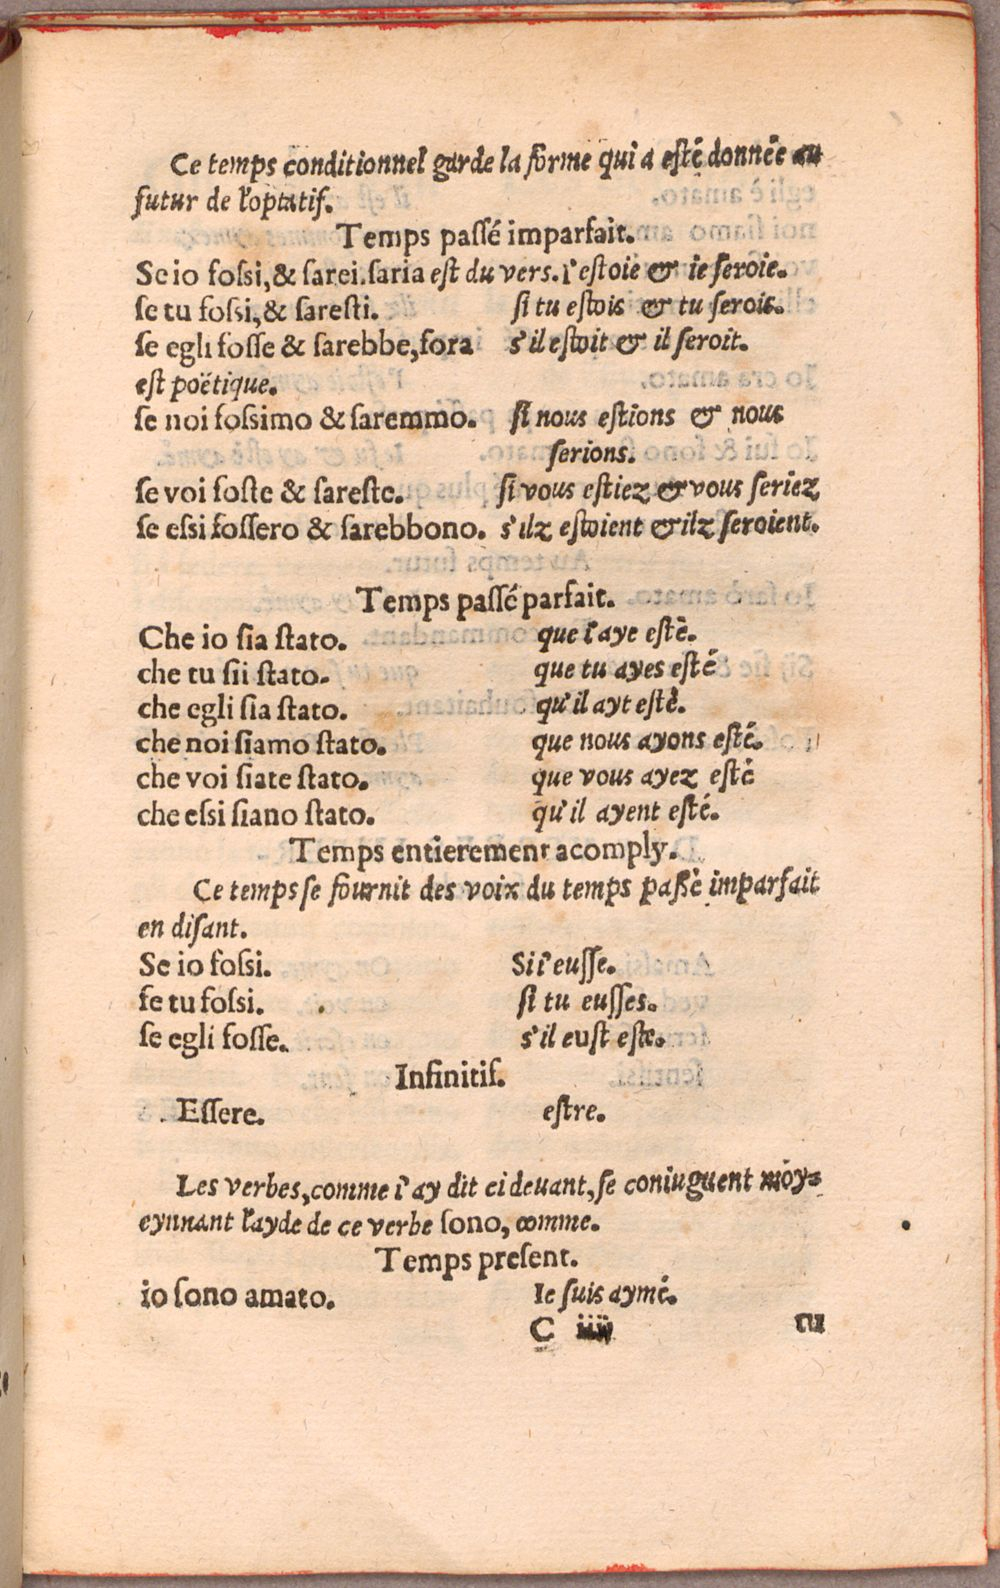 Ce temps conditionnel garde la forme qui a esté donnée au
futur de l'optatif.
Temps passé imparfait.
Se io fossi, & sarei. saria est du vers. i'estoie & ie seroie.
se tu fossi, & saresti. si tu estois & tu serois.
se egli fosse & sarebbe, fora s'il estoit & il seroit.
est poëtique.
se noi fossimo & saremmo. si nous estions & nous
serions.
se voi foste & sareste. si vous estiez & vous seriez
se essi fossero & sarebbono. s'ilz estoient & ilz seroient.
Temps passé parfait.
Che io sia stato. que i'aye esté.
che tu sii stato. que tu ayes esté
che egli sia stato. qu'il ayt esté.
che noi siamo stato. que nous ayons esté.
che voi siate stato. que vous ayez esté
che essi siano stato. qu'il ayent esté.
Temps entierement acomply.
Ce temps se fournit des voix du temps passè imparfait
en disant.
Se io fossi. Si i'eusse.
se tu fossi. si tu eusses.
se egli fosse. s'il eust este.
Infinitif.
Essere. estre.
Les verbes, comme i'ay dit ci deuant, se coniuguent moy-
eynnant l'ayde de ce verbe sono, comme.
Temps present.
io sono amato. Ie suis aymé.
C iiij tu